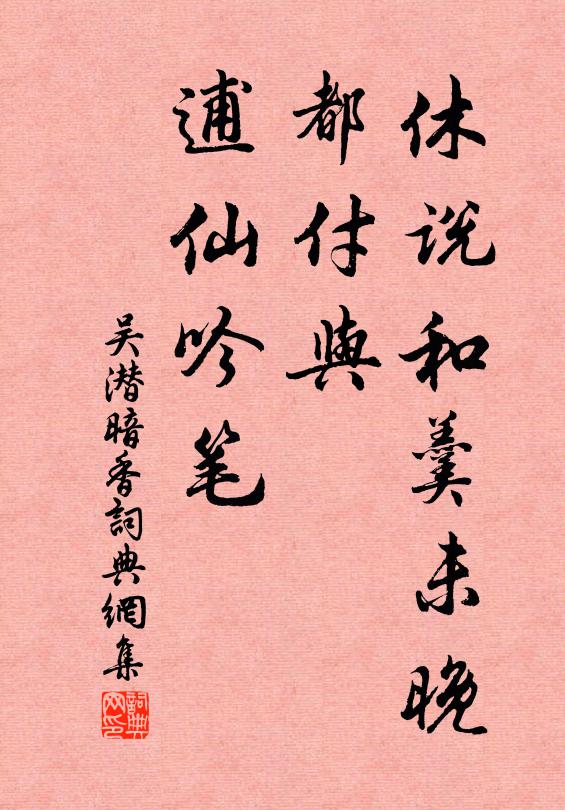 休说和羹未晚
都付與
逋仙吟笔
吴潜暗香詞典網集
詞典网印